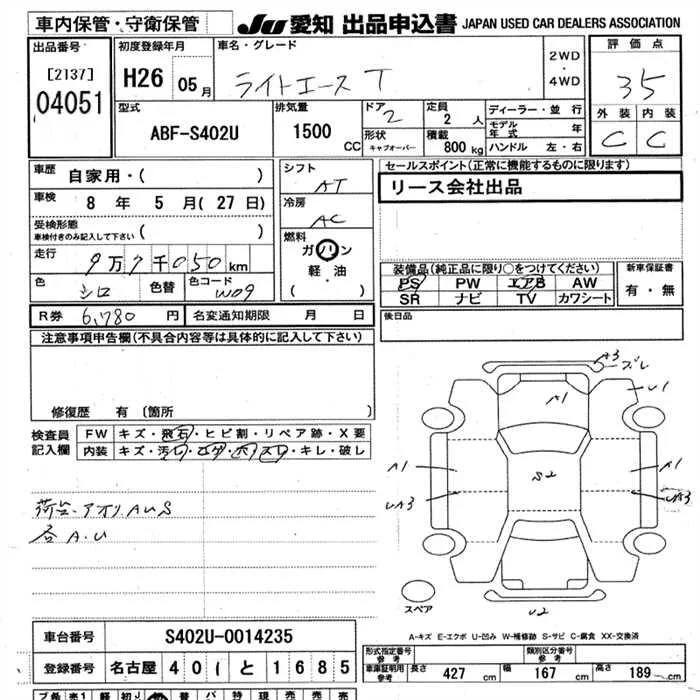 車内保管・守衛保管
JU 愛知 出品申込書 JAPAN USED CAR DEALERS ASSOCIATION
出品番号
[2137]
04051
初度登録年月
H26 05月
車名・グレード
ライトエース T
2WD
・
4WD
評価点
35
外装 内装
C C
型式
ABF-S402U
排気量
1500
CC
ドア
2
形状
キャブオーバー
定員
2 人
積載
800kg
ディーラー・並行
モデル年式 年
ハンドル 左・右
車歴 自家用・( )
車検 8 年 5 月( 27 日)
受検形態
車検付きのみ記入して下さい ( )
走行 9万7千050km
色 シロ 色替 色コード W09
シフト
AT
冷房
AC
燃料
ガソリン
軽・油
( ・ )
セールスポイント(正常に機能するものに限ります)
リース会社出品
装備品(純正品に限り○をつけてください)
PS PW エアB AW
SR ナビ TV カワシート
新車保証書
有・無
R券 6,780 円 名変通知期限 月 日
後日品
注意事項申告欄(不具合内容等は具体的に記入して下さい)
修復歴 有 (箇所
検査員
記入欄
FW キズ・飛石・ヒビ割・リペア跡・X要
内装 キズ・汚レ・コゲ・穴・スレ・キレ・破レ
荷台・アオリ A U S
各 A.U
A3
ズレ
U1
A1
A1
A1
S2
UA3
UA3
U2
スペア
A-キズ E-エクボ U-凹み W-補修跡 S-サビ C-腐食 XX-交換済
車台番号 S402U-0014235
登録番号 名古屋 40( と 1685
形式指定番号
参考
類別区分番号
参考
車庫証明用
参考
長さ 427 cm 幅 167 cm 高さ 189 cm